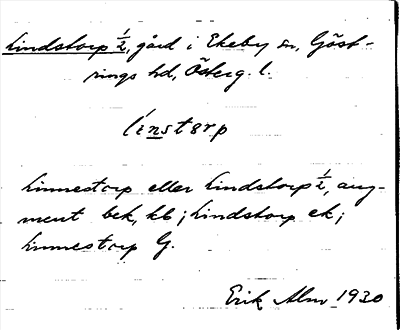 Lindstorp ½, gård i Ekeby sn, Göst-
rings hd, Österg. l.
línstorp
Linnestorp eller Lindstorp ½, aug-
ment bek, kb; Lindstorp ek;
Linnestorp G.
Erik Alm 1930